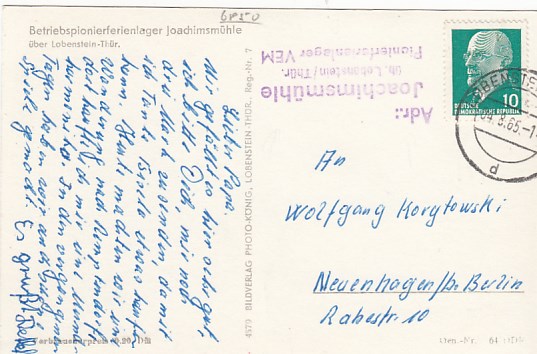 6850
Betriebspionierferienlager Joachimsmühle
über Lobenstein-Thür.
Lieber Papa
Mir gefällt es hier sehr gut.
Ich bitte Dich, mir noch
drei Mark zu senden, damit
ich Tante etwas kaufen
kann. Heute machten wir eine
Wanderung nach
Dort kaufte ich mir eine
In den vergangenen
Tagen haben wir
Spiele gemacht. Es grüßt
Verbraucherpreis 0,20 DM
4570 BILDVERLAG PHOTO-KÖNIG, LOBENSTEIN-THÜR. Reg.-Nr. 7
Adr.:
Joachimsmühle
üb. Lobenstein/Thür.
Pionierlager VEM
DEUTSCHE
DEMOKRATISCHE REPUBLIK
10
LOBENSTE
04.8.65.-1
d
An
Wolfgang Korytowski
Neuenhagen/b. Berlin
Rabestr. 10
Gen.-Nr. 64